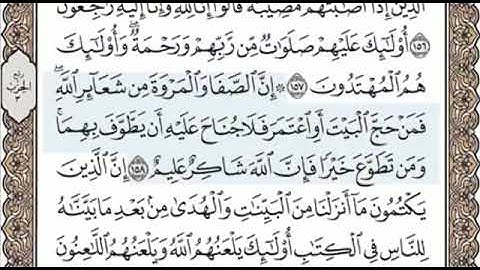 الَّذِينَ إِذَا أَصَابَتْهُم مُّصِيبَةٌ قَالُوا إِنَّا لِلَّهِ وَإِنَّا إِلَيْهِ رَاجِعُونَ
﴿١٥٦﴾ أُولَٰئِكَ عَلَيْهِمْ صَلَوَاتٌ مِّن رَّبِّهِمْ وَرَحْمَةٌ ۖ وَأُولَٰئِكَ
هُمُ الْمُهْتَدُونَ ﴿١٥٧﴾ ۞ إِنَّ الصَّفَا وَالْمَرْوَةَ مِن شَعَائِرِ اللَّهِ ۖ
فَمَنْ حَجَّ الْبَيْتَ أَوِ اعْتَمَرَ فَلَا جُنَاحَ عَلَيْهِ أَن يَطَّوَّفَ بِهِمَا ۚ
وَمَن تَطَوَّعَ خَيْرًا فَإِنَّ اللَّهَ شَاكِرٌ عَلِيمٌ ﴿١٥٨﴾ إِنَّ الَّذِينَ
يَكْتُمُونَ مَا أَنزَلْنَا مِنَ الْبَيِّنَاتِ وَالْهُدَىٰ مِن بَعْدِ مَا بَيَّنَّاهُ
لِلنَّاسِ فِي الْكِتَابِ أُولَٰئِكَ يَلْعَنُهُمُ اللَّهُ وَيَلْعَنُهُمُ اللَّاعِنُونَ
ربع
الحزب
٣